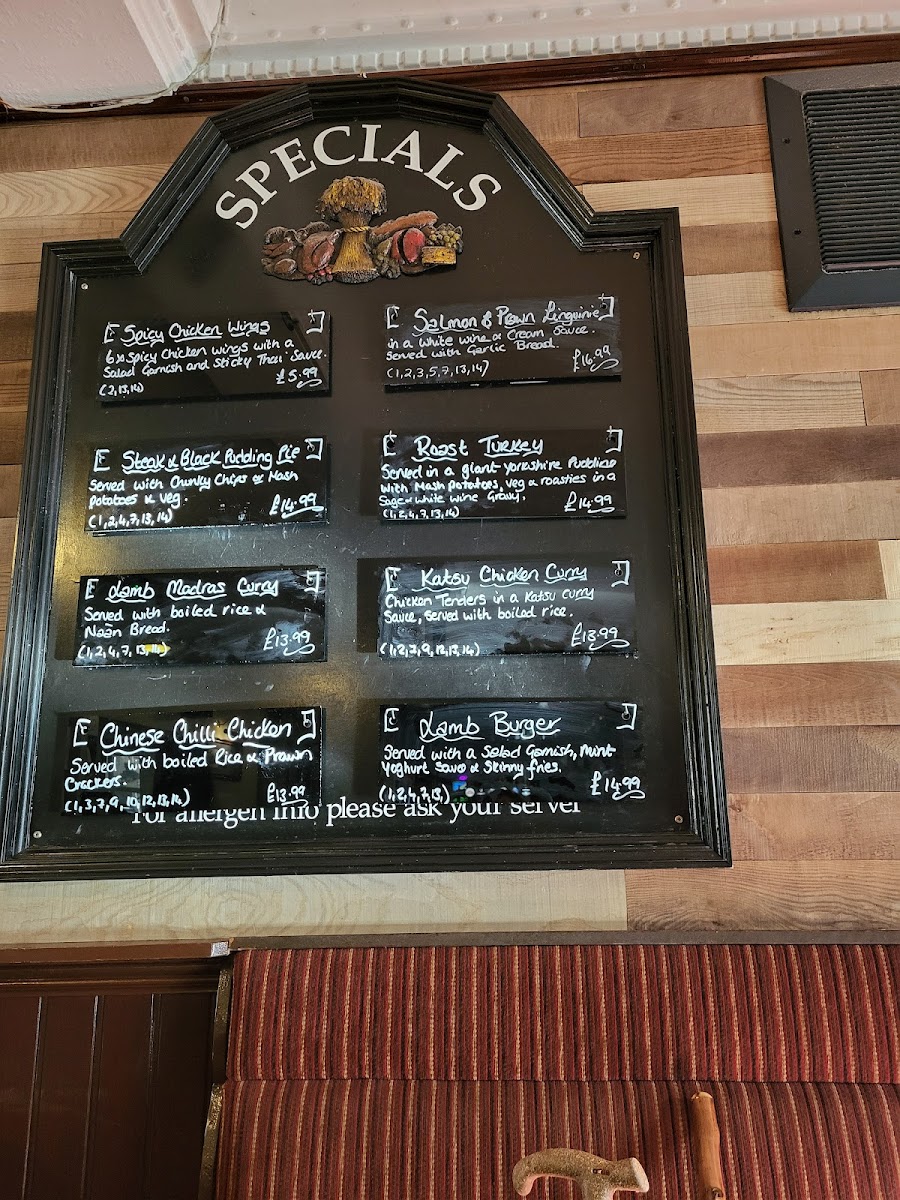 SPECIALS
Spicy Chicken Wings
6x Spicy Chicken wings with a
Salad Garnish and Sticky Thai Sauce.
£5.99
(2,13,14)
Salmon & Prawn Linguinie
in a White wine & Cream Sauce.
Served with Garlic Bread.
£16.99
(1,2,3,5,7,13,14)
Steak & Black Pudding Pie
Served with Chunky Chips or Mash
Potatoes & Veg.
£14.99
(1,2,4,7,13,14)
Roast Turkey
Served in a giant Yorkshire Pudding
With Mash potatoes, veg & roasties in a
Sage & white wine Gravy.
£14.99
(1,2,4,7,13,14)
Lamb Madras Curry
Served with boiled rice &
Naan Bread.
£13.99
(1,2,4,7,13,14)
Katsu Chicken Curry
Chicken Tenders in a Katsu curry
Sauce, served with boiled rice.
£13.99
Chinese Chilli Chicken
Served with boiled Rice & Prawn
Crackers.
£13.99
(1,3,7,9,10,12,13,14)
Lamb Burger
Served with a Salad Garnish, Mint
Yoghurt & Skinny fries.
£14.99
(1,2,4,7,13)
For allergen info please ask your server